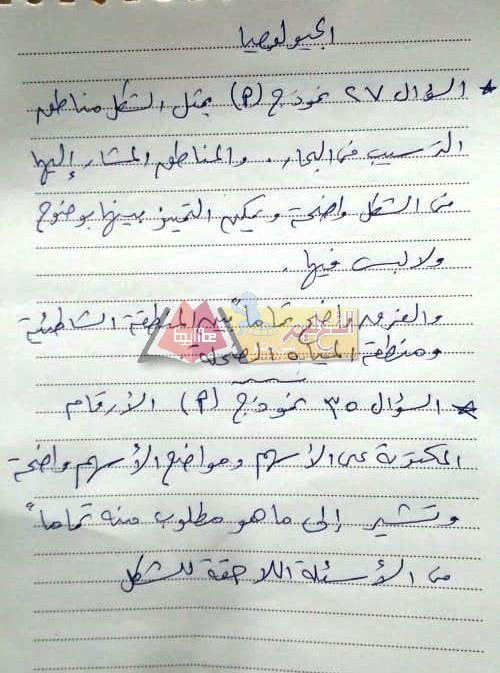 الجيولوجيا
* السؤال ٢٧ نموذج (P) يمثل الشكل مناطق
الترسيب فى البحار. والمناطق المشار إليها
فى الشكل واضحة ويمكن التمييز بينها بوضوح
ولا لبس فيها.
والفرق واضح تماماً بين المنطقة الشاطئة
ومنطقة المياه الضحلة
* السؤال ٣٥ نموذج (P) الأرقام
المكتوبة على الأسهم ومواضع الأسهم واضحة
وتشير إلى ما هو مطلوب منه تماماً
من الأسئلة اللاحقة للشكل